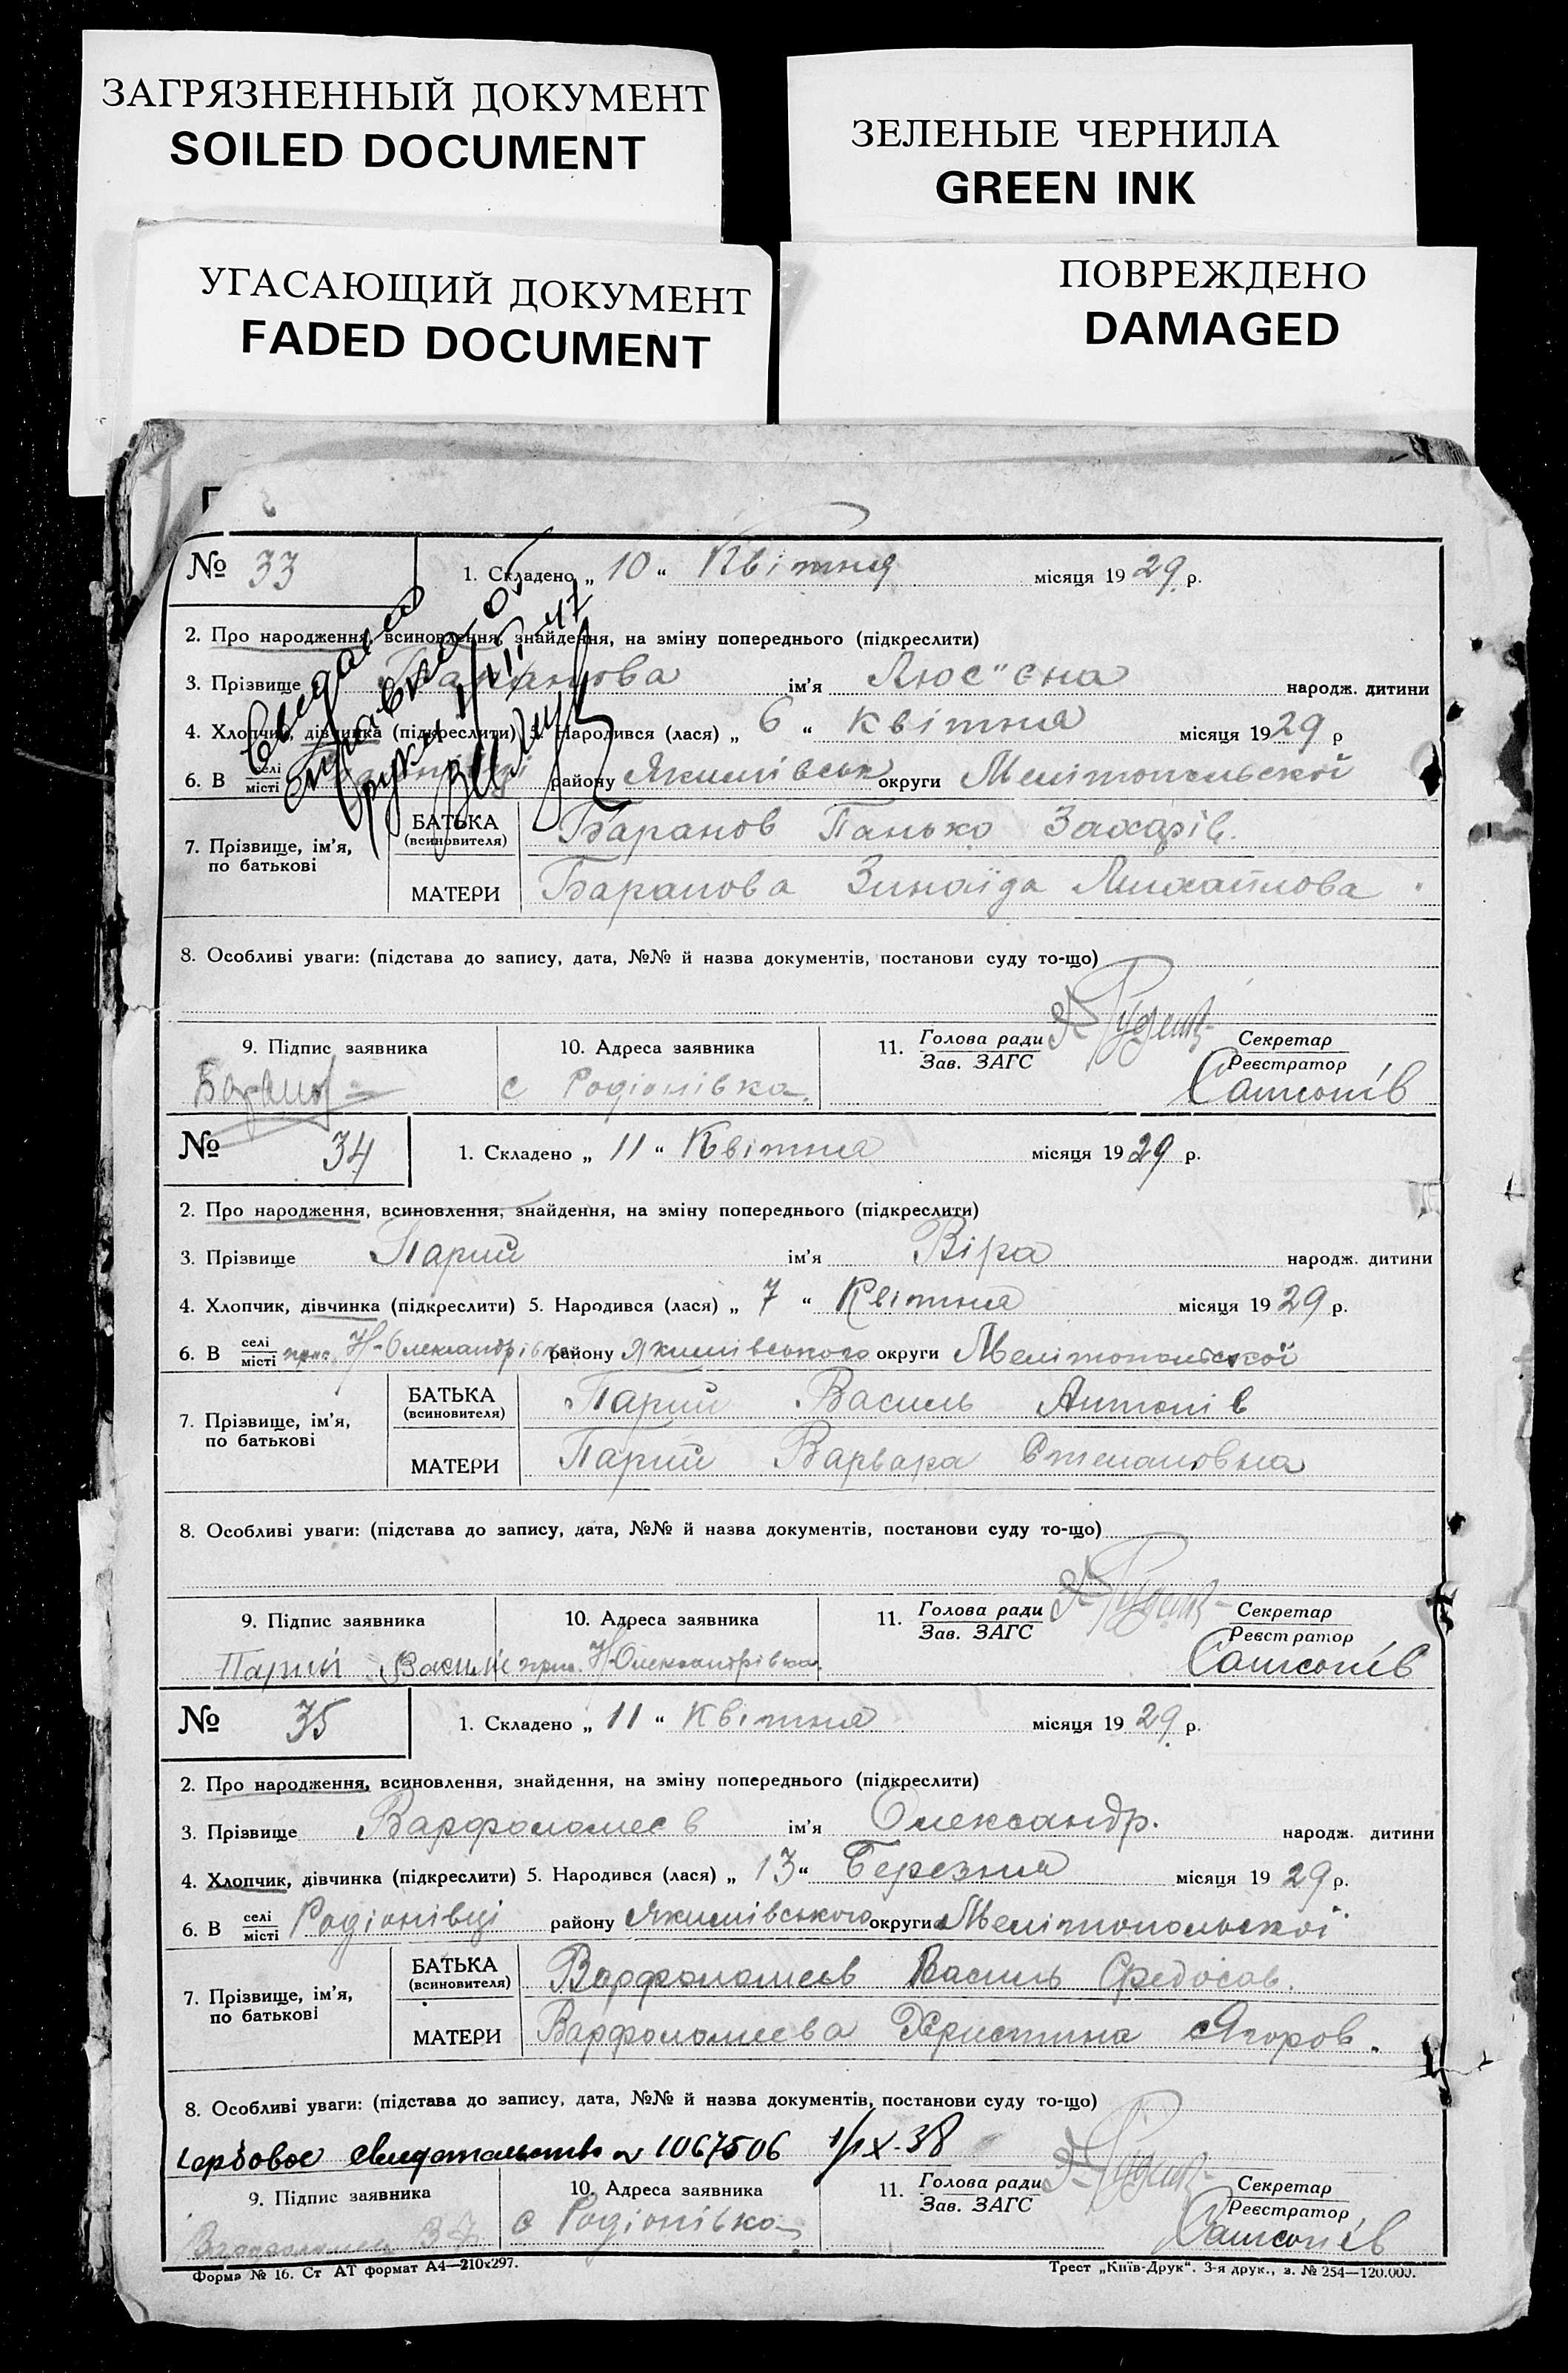 ЗАГРЯЗНЕННЫЙ ДОКУМЕНТ
SOILED DOCUMENT
ЗЕЛЕНЫЕ ЧЕРНИЛА
GREEN INK
УГАСАЮЩИЙ ДОКУМЕНТ
FADED DOCUMENT
ПОВРЕЖДЕНО
DAMAGED
№ 33
1. Складено „ 10 “ Квітня місяця 19 29 р.
2. Про народження, всиновлення, знайдення, на зміну попереднього (підкреслити)
3. Прізвище Баранова ім’я Люс"єна народж. дитини
4. Хлопчик, дівчинка (підкреслити) 5. Народився (лася) „ 6 “ Квітня місяця 19 29 р
6. В селі місті району Якимівськ округи Мелітопольскої
7. Прізвище, ім’я, по батькові
БАТЬКА (всиновителя) Баранов Панько Захарів.
МАТЕРИ Баранова Зинаїда Михайлова
8. Особливі уваги: (підстава до запису, дата, №№ й назва документів, постанови суду то-що)
9. Підпис заявника
10. Адреса заявника
11. Голова ради Зав. ЗАГС
Секретар Реєстратор
Баранов
с Родіонівка.
Самсонів
№ 34
1. Складено „ 11 “ Квітня місяця 19 29 р.
2. Про народження, всиновлення, знайдення, на зміну попереднього (підкреслити)
3. Прізвище Парий ім’я Віра народж. дитини
4. Хлопчик, дівчинка (підкреслити) 5. Народився (лася) „ 7 “ Квітня місяця 19 29 р.
6. В селі місті Н-Олександрівка району Якимівського округи Мелітопольської
7. Прізвище, ім’я, по батькові
БАТЬКА (всиновителя) Парий Василь Антонів
МАТЕРИ Парий Варвара Степановна
8. Особливі уваги: (підстава до запису, дата, №№ й назва документів, постанови суду то-що)
9. Підпис заявника
10. Адреса заявника
11. Голова ради Зав. ЗАГС
Секретар Реєстратор
Парий Н-Олександрівка.
Самсонів
№ 35
1. Складено „ 11 “ Квітня місяця 19 29 р.
2. Про народження, всиновлення, знайдення, на зміну попереднього (підкреслити)
3. Прізвище Варфоломеєв ім’я Олександр. народж. дитини
4. Хлопчик, дівчинка (підкреслити) 5. Народився (лася) „ 13 “ Березня місяця 19 29 р.
6. В селі місті Родіонівці району Якимівського округи Мелітопольскої
7. Прізвище, ім’я, по батькові
БАТЬКА (всиновителя) Варфоломеєв Василь Федосов.
МАТЕРИ Варфоломеєва Христина Ягоров.
8. Особливі уваги: (підстава до запису, дата, №№ й назва документів, постанови суду то-що)
гербовое свидетельство № 1067506 1/IX-38
9. Підпис заявника
10. Адреса заявника
11. Голова ради Зав. ЗАГС
Секретар Реєстратор
с Родіонівка
Самсонів
Форма № 16. Ст АТ формат А4—210х297.
Трест „Київ-Друк“. 3-я друк., з. № 254—120.000.